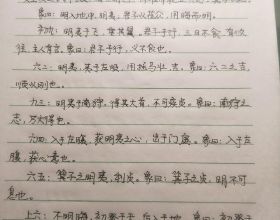 象曰：明入地中，明夷，君子以莅众，用晦而明。
初九：明夷于飞，垂其翼。君子于行，三日不食，有攸
往，主人有言。象曰：君子于行，义不食也。
六二：明夷，夷于左股，用拯马壮，吉。象曰：六二之吉，
顺以则也。
九三：明夷于南狩，得其大首，不可疾贞。象曰：南狩之
志，乃大得也。
六四：入于左腹，获明夷之心，出于门庭。象曰：入于左
腹，获心意也。
六五：箕子之明夷，利贞。象曰：箕子之贞，明不可
息也。
上六：不明晦，初登于天，后入于地。象曰：初登于